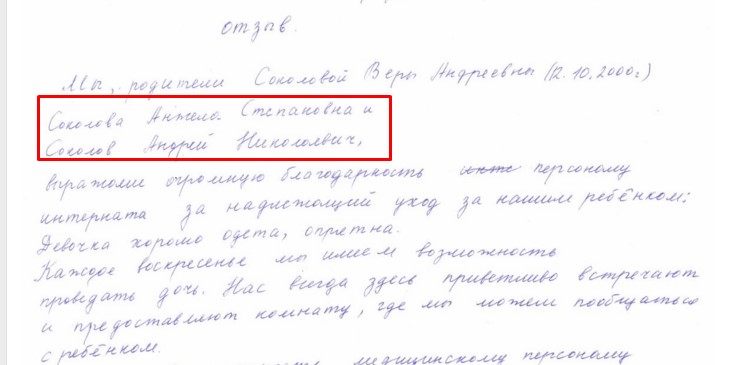 отзыв.
Мы, родители Соколовой Веры Андреевны (12.10.2000г)
Соколова Анжела Степановна и
Соколов Андрей Николаевич,
выражаем огромную благодарность персоналу
интерната за надлежащий уход за нашим ребёнком:
Девочка хорошо одета, опрятна.
Каждое воскресенье мы имеем возможность
проведать дочь. Нас всегда здесь приветливо встречают
и предоставляют комнату, где мы можем пообщаться
с ребёнком.
медицинскому персоналу